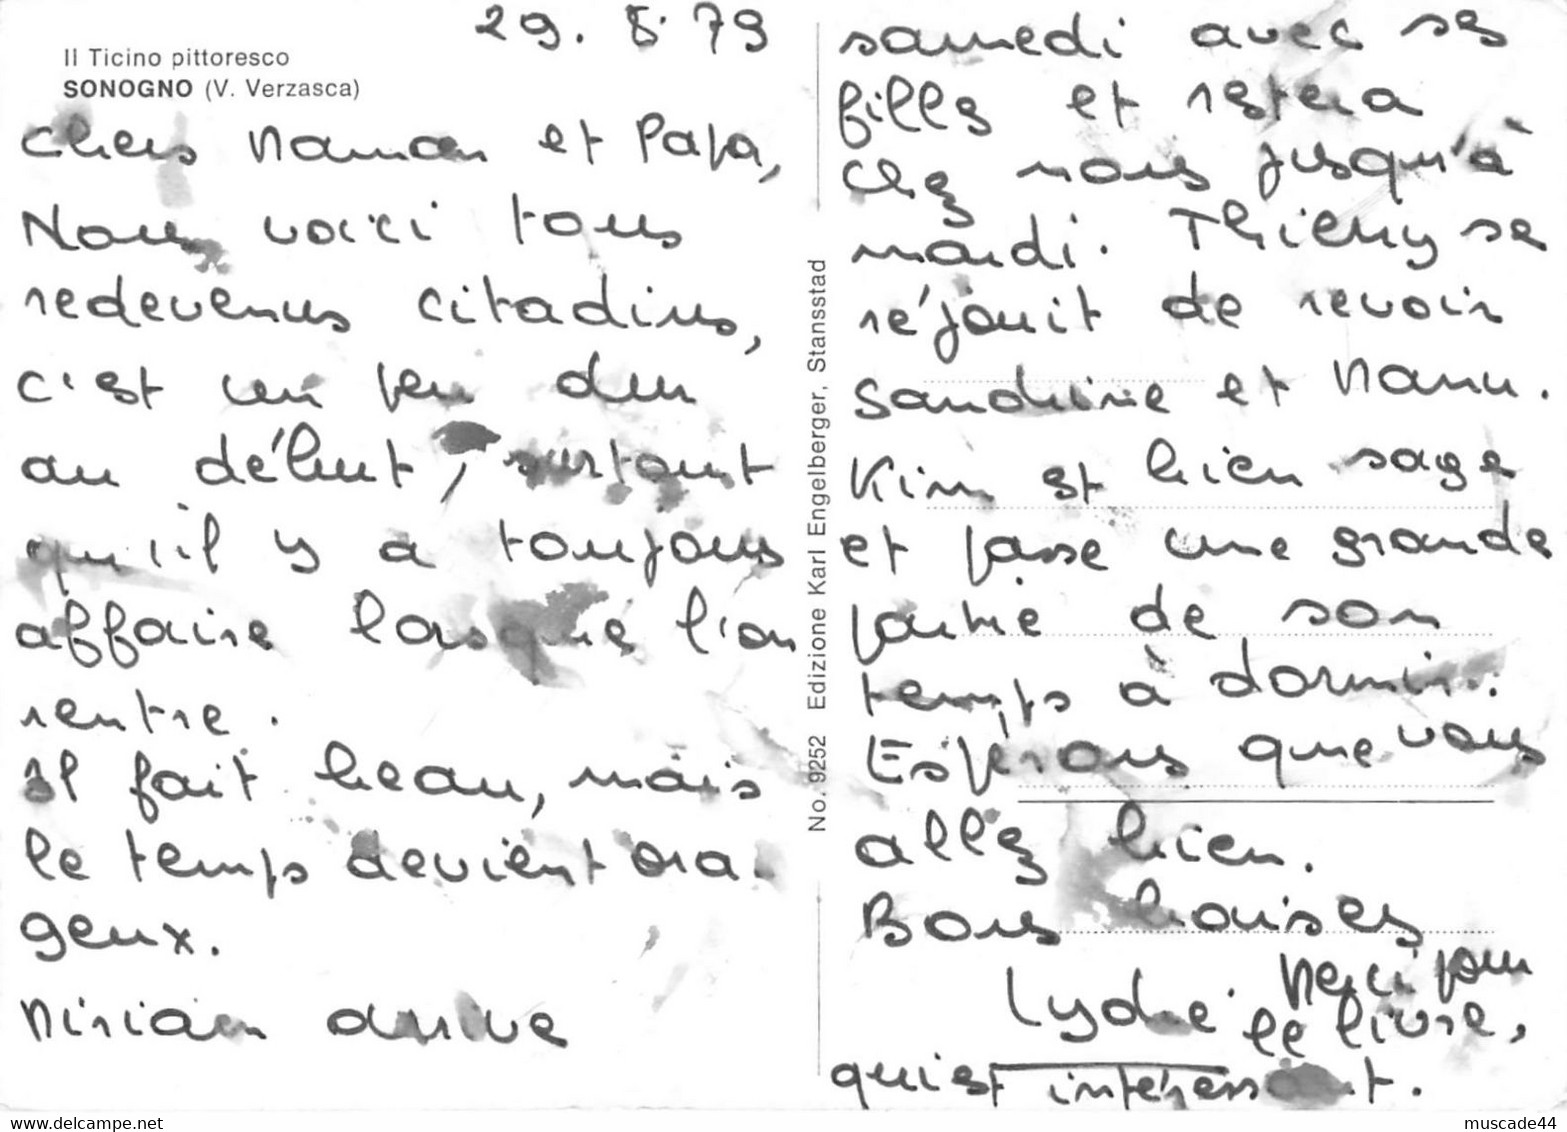 29. 8. 79
Il Ticino pittoresco
SONOGNO (V. Verzasca)
Chers Maman et Papa,
Nous voici tous
redevenus citadins,
c'est un peu dur
au début, surtout
qu'il y a toujours
affaire lorsque l'on
rentre.
Il fait beau, mais
le temps devient ora-
geux.
Miriam arrive
No. 9252 Edizione Karl Engelberger, Stansstad
samedi avec ses
filles et restera
chez nous jusqu'à
mardi. Thierry se
réjouit de revoir
Sandrine et Manu.
Kim est bien sage
et passe une grande
partie de son
temps à dormir.
Espérons que vous
allez bien.
Bons baisers
Lydie. Merci pour
le livre,
qui est intéressant.
muscade44